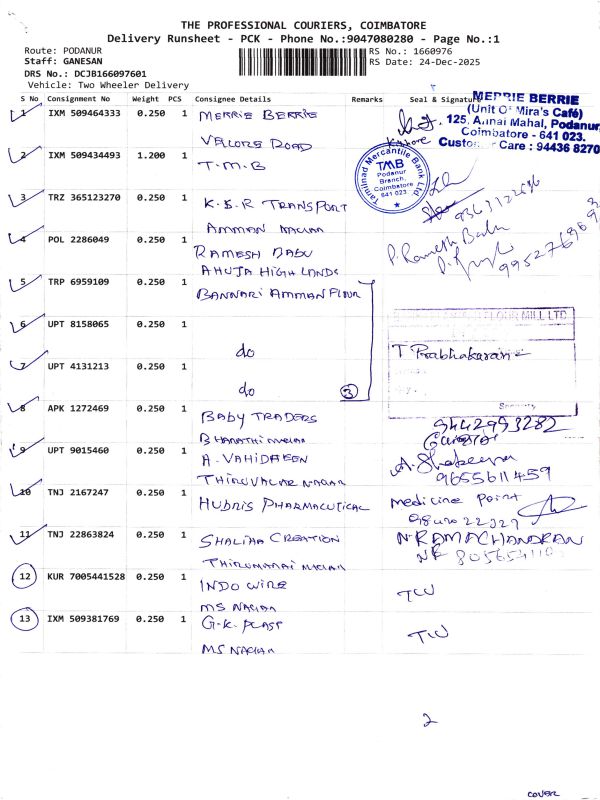 THE PROFESSIONAL COURIERS, COIMBATORE
Delivery Runsheet - PCK - Phone No.:9047080280 - Page No.:1
Route: PODANUR
Staff: GANESAN
DRS No.: DCJB166097601
Vehicle: Two Wheeler Delivery
RS No.: 1660976
RS Date: 24-Dec-2025
S No Consignment No Weight PCS Consignee Details Remarks Seal & Signature
MERRIE BERRIE
(Unit Of Mira's Café)
125, Annai Mahal, Podanur
Coimbatore - 641 023.
Customer Care : 94436 8270
1 IXM 509464333 0.250 1 MERRIE BERRIE
VALORE ROAD
2 IXM 509434493 1.200 1 T.M.B
Tamilnad Mercantile Bank Ltd
TMB
Podanur
Branch,
Coimbatore
641 023
3 TRZ 365123270 0.250 1 K.S.R TRANSPORT
AMMAN NAGAR
4 POL 2286049 0.250 1 RAMESH BABU
AHUJA HIGH LANDS
P. Ramesh Babu
5 TRP 6959109 0.250 1 BANNARI AMMAN FLOUR
6 UPT 8158065 0.250 1
do
FLOUR MILL LTD
7 UPT 4131213 0.250 1
do
3
T Prabhakaran
Security
8 APK 1272469 0.250 1 BABY TRADERS
BHARATHI NAGAR
9442993282
9 UPT 9015460 0.250 1 A. VAHIDABEN
THIRUVALAR NAGAR
A. Shabeena
9655611459
10 TNJ 2167247 0.250 1 HUBRIS PHARMACUTICAL
Medicine Point
11 TNJ 22863824 0.250 1 SHALIHA CREATION
THIRUMARAI NAGAR
N. RAMACHANDRAN
12 KUR 7005441528 0.250 1 INDO WIRE
MS NAGAR
13 IXM 509381769 0.250 1 G.K. PLAST
MS NAGAR
2
COVER